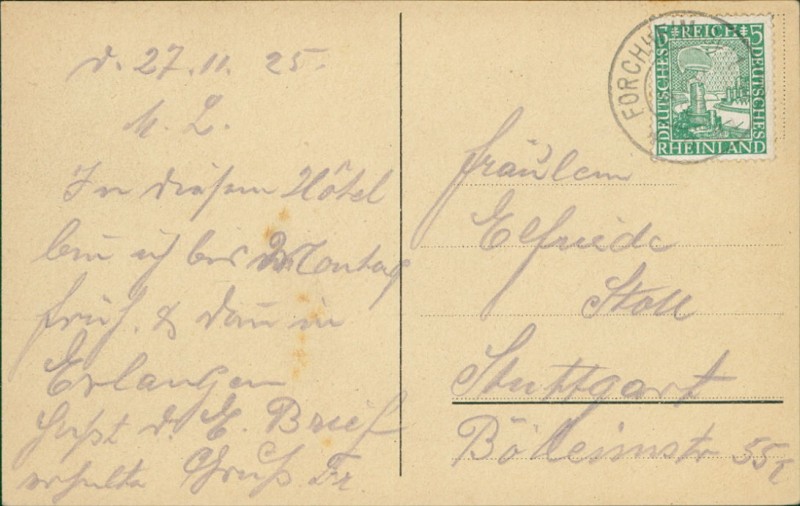 d. 27.11. 25.
M. L.
In diesem Hôtel
bin ich bis Montag
früh. & dan̄ in
Erlangen
Hast d. E. Brief
erhalte Gruß Fr.
FORCHHEIM
5 REICH 5
DEUTSCHES
DEUTSCHES
RHEINLAND
Fräulein
Elfriede
Stoll
Stuttgart
Böheimstr 55